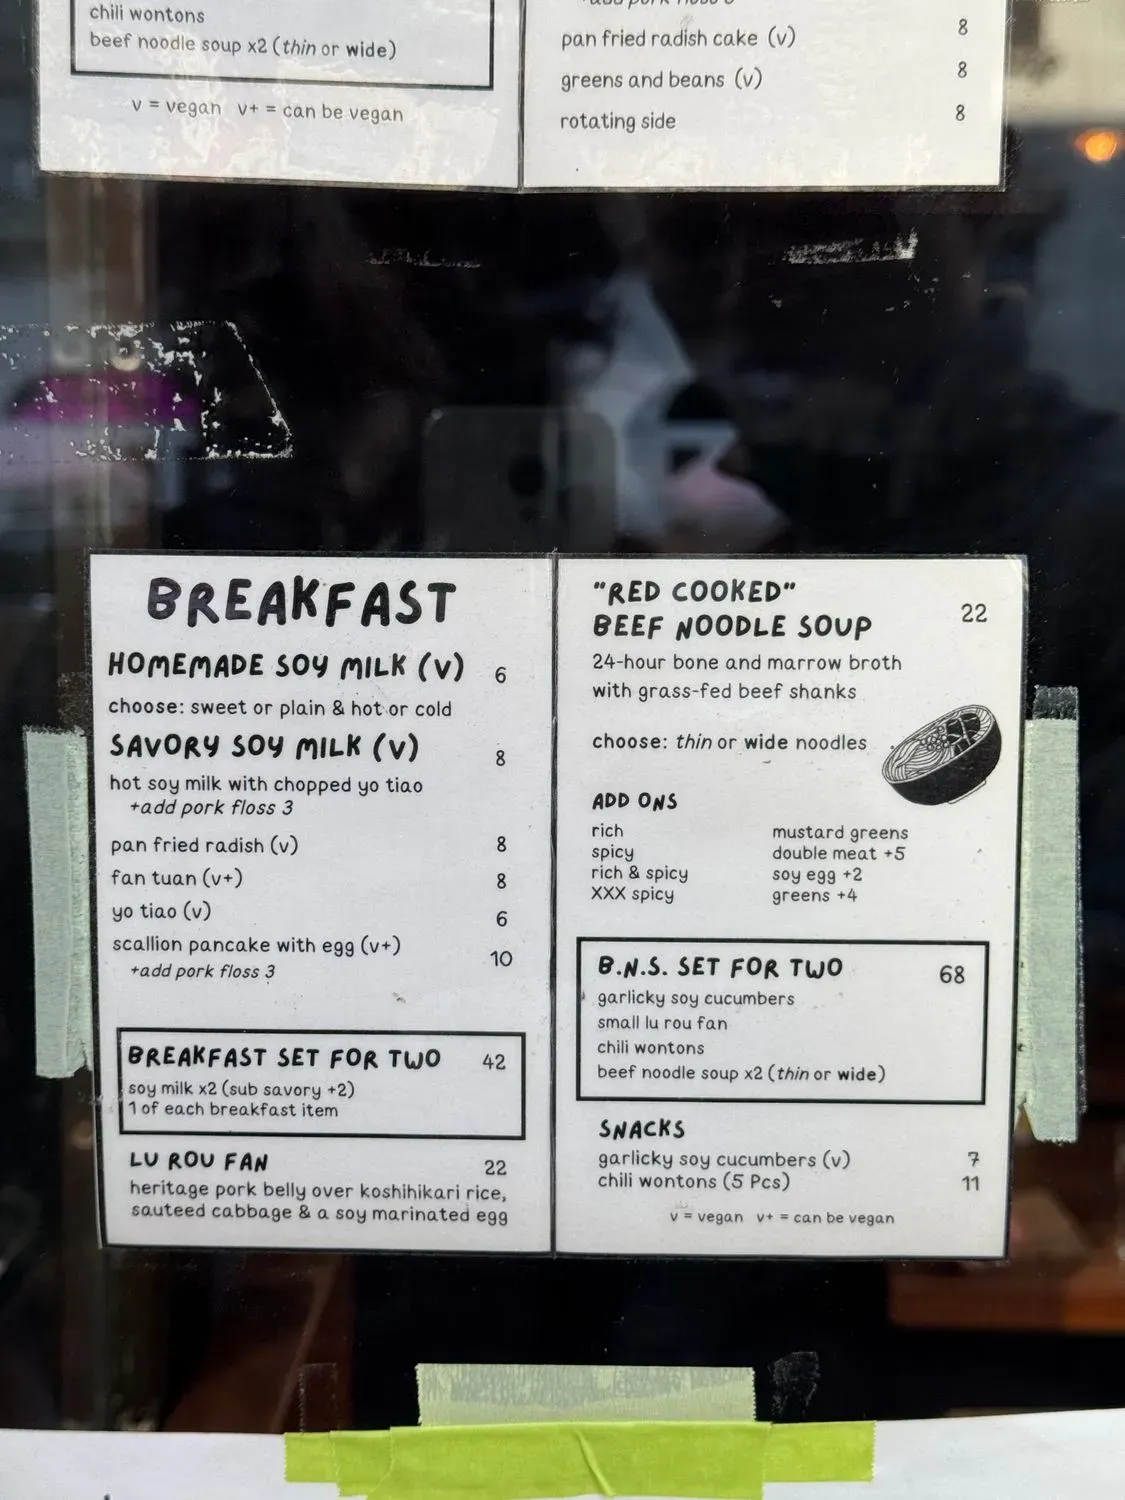 chili wontons
beef noodle soup x2 (thin or wide)
v = vegan v+ = can be vegan
+add pork floss 3
pan fried radish cake (v) 8
greens and beans (v) 8
rotating side 8
BREAKFAST
HOMEMADE SOY MILK (V) 6
choose: sweet or plain & hot or cold
SAVORY SOY MILK (V) 8
hot soy milk with chopped yo tiao
+add pork floss 3
pan fried radish (v) 8
fan tuan (v+) 8
yo tiao (v) 6
scallion pancake with egg (v+) 10
+add pork floss 3
BREAKFAST SET FOR TWO 42
soy milk x2 (sub savory +2)
1 of each breakfast item
LU ROU FAN 22
heritage pork belly over koshihikari rice,
sauteed cabbage & a soy marinated egg
"RED COOKED"
BEEF NOODLE SOUP 22
24-hour bone and marrow broth
with grass-fed beef shanks
choose: thin or wide noodles
ADD ONS
rich
spicy
rich & spicy
XXX spicy
mustard greens
double meat +5
soy egg +2
greens +4
B.N.S. SET FOR TWO 68
garlicky soy cucumbers
small lu rou fan
chili wontons
beef noodle soup x2 (thin or wide)
SNACKS
garlicky soy cucumbers (v) 7
chili wontons (5 Pcs) 11
v = vegan v+ = can be vegan